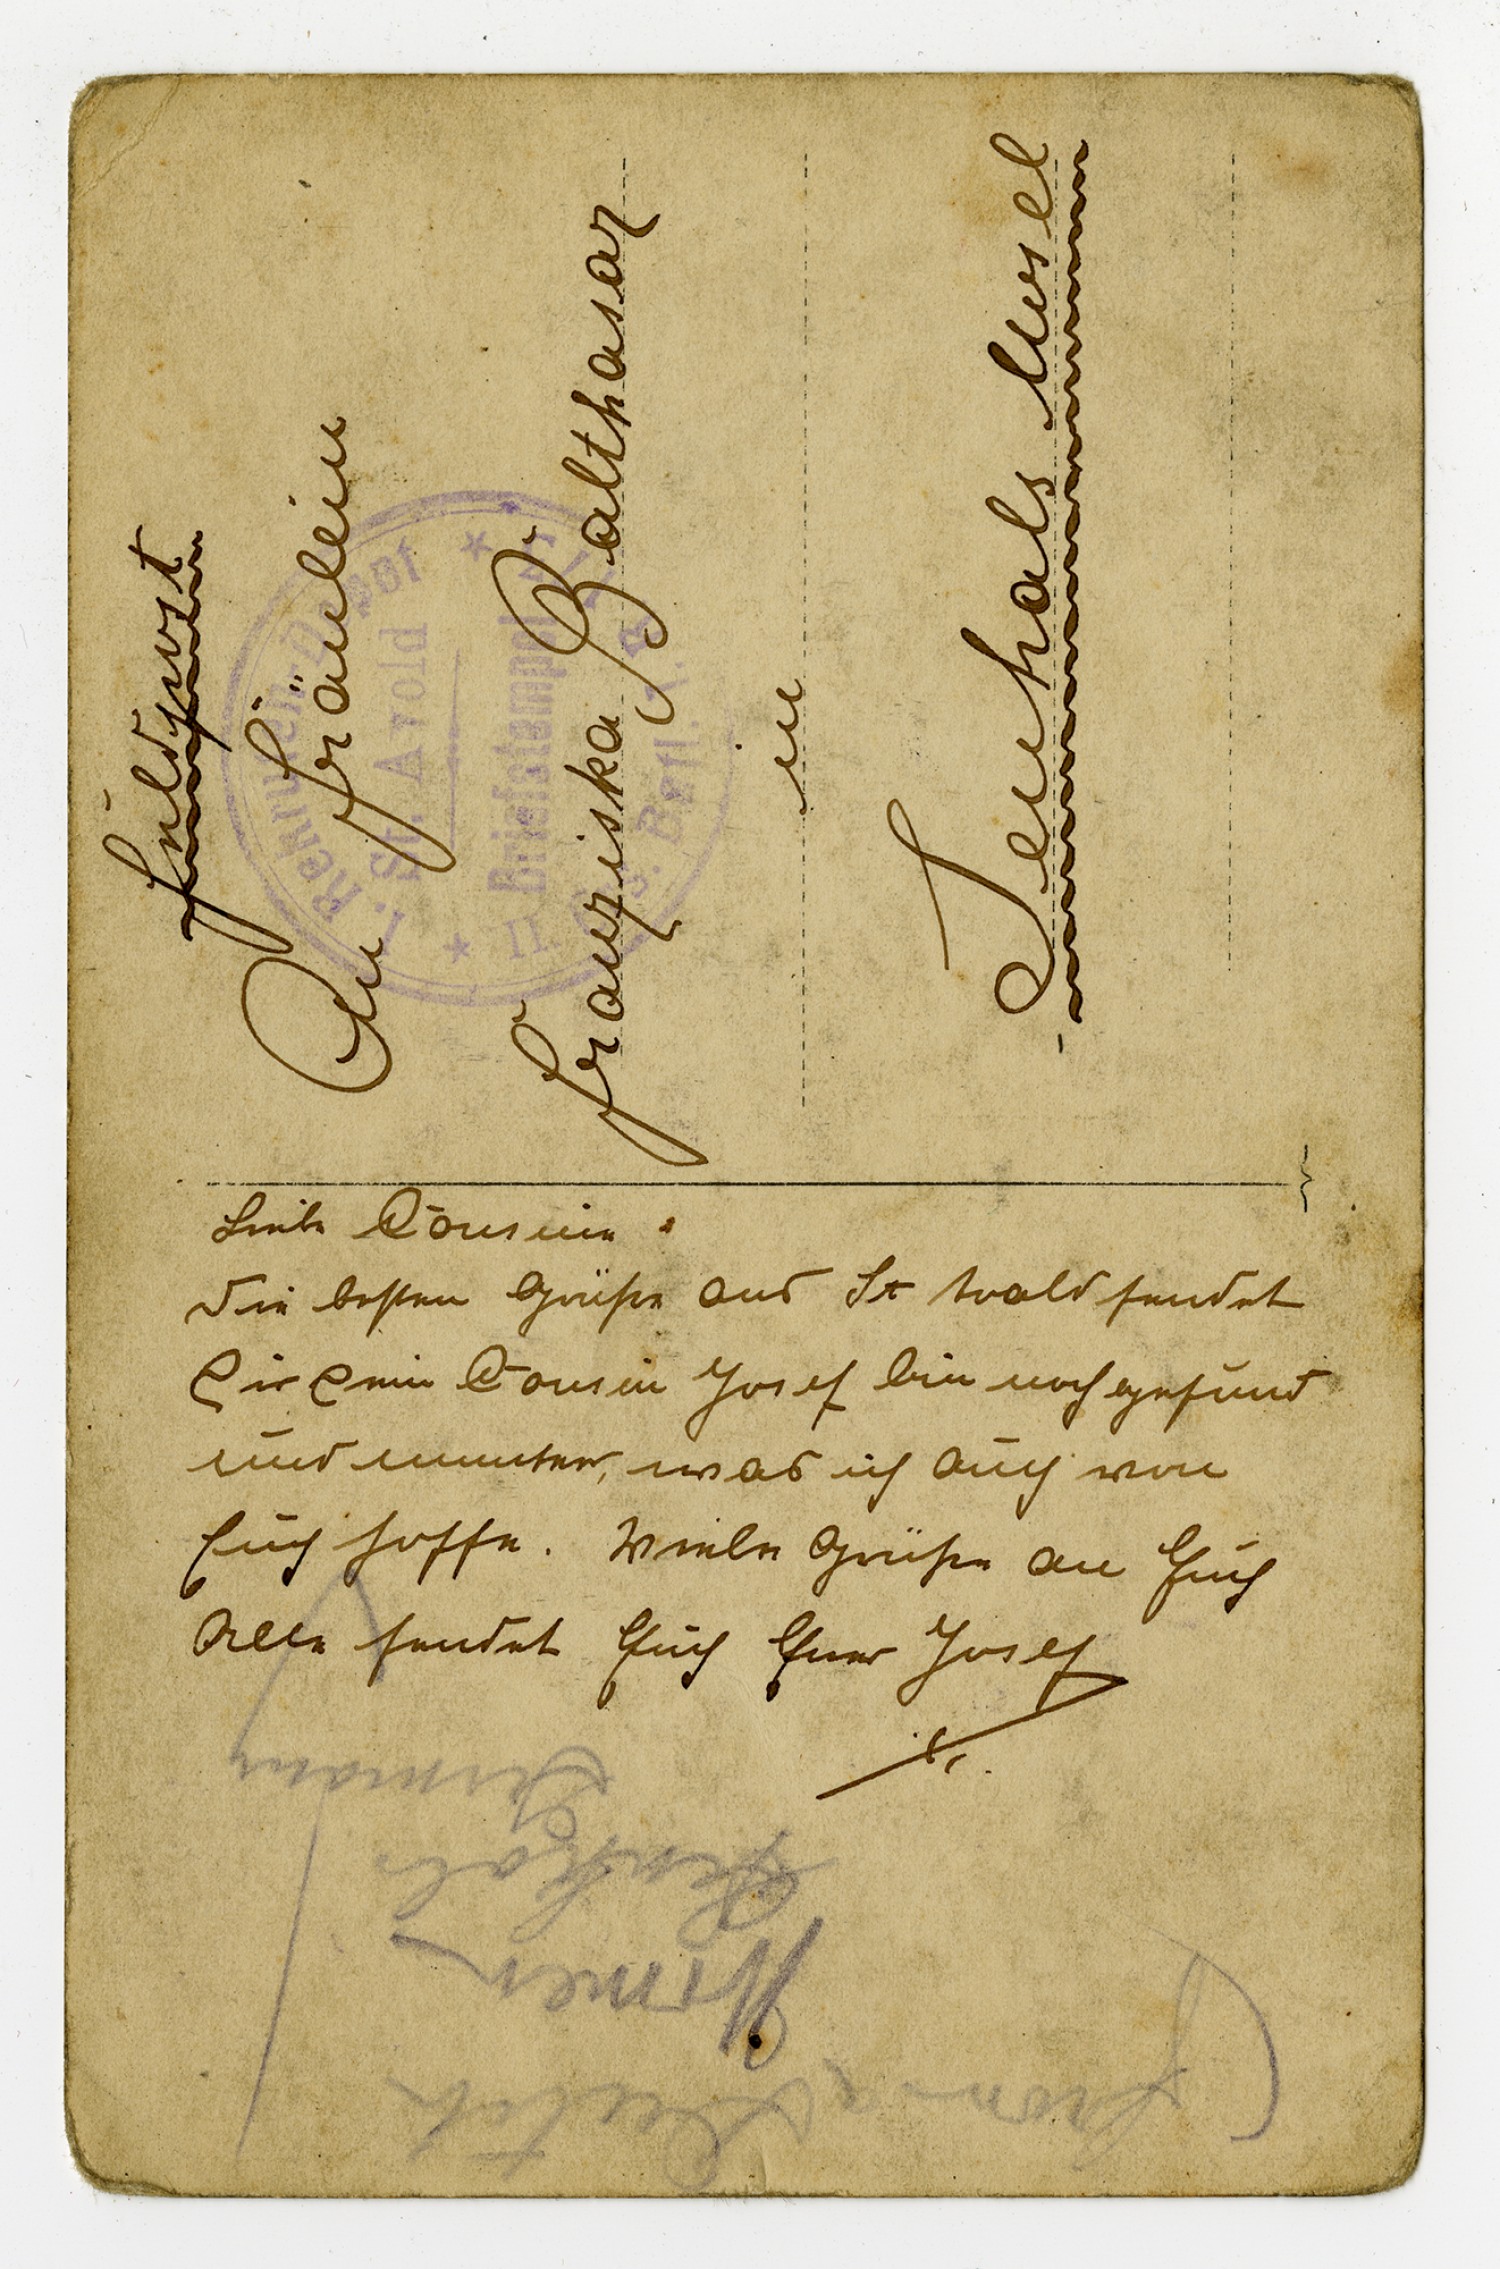 Feldpost
An Fräulein
Franziska Balthasar
in
Senhals Mosel
I. Rekruten Depot
St. Avold
Briefstempel
II. Ers. Batl.
Liebe Cousine.
Die besten Grüße aus St Avold sendet
Dir Dein Cousin Josef bin noch gesund
und munter, was ich auch von
Euch hoffe. Viele Grüße an Euch
Alle sendet Euch Euer Josef
from a Deutch
Senhals
Germany